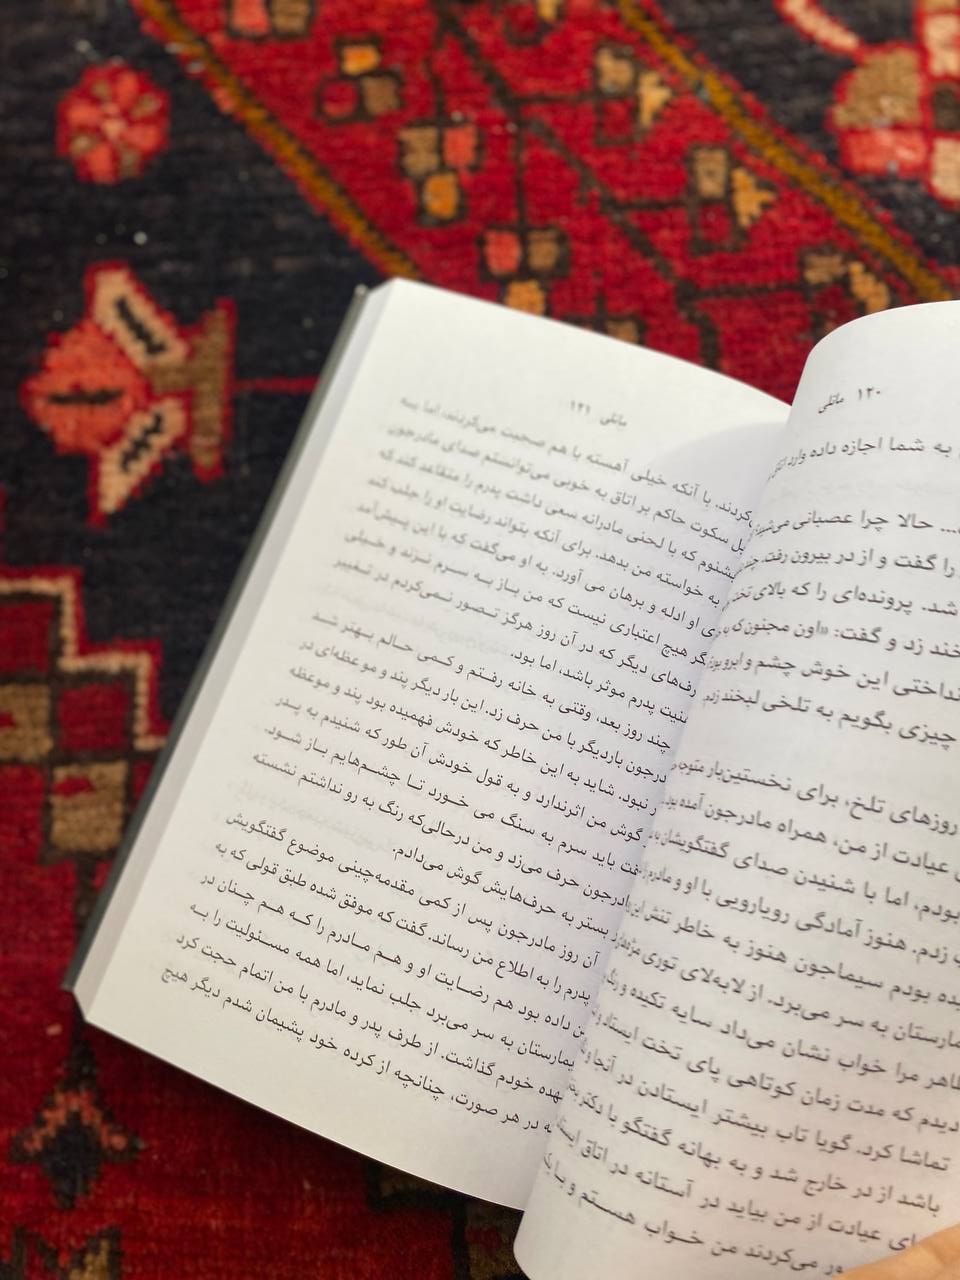 ۱۲۰ ماتلی
به شما اجازه داده وارد اتاق
... حالا چرا عصبانی
را گفت و از در بیرون رفت. چند
شد. پرونده‌ای را که بالای تخت
خند زد و گفت: «اون مجنون که
این خوش چشم و ابرو
چیزی بگویم به تلخی لبخند زدم.
روزهای تلخ، برای نخستین‌بار متوجه
عیادت از من، همراه مادرجون آمده بود.
بودم، اما با شنیدن صدای گفتگویشان
زدم. هنوز آمادگی رویارویی با او و مادرم
بودم سیماجون هنوز به خاطر تنش این
به سر می‌برد. از لابه‌لای توری
مرا خواب نشان می‌داد سایه تکیده و
دیدم که مدت زمان کوتاهی پای تخت ایستاد و
تماشا کرد. گویا تاب بیشتر ایستادن در آنجا
باشد از در خارج شد و به بهانه گفتگو با دکتر
عیادت از من بیاید در آستانه در اتاق
می‌کردند من خواب هستم و با
ماتلی ۱۲۱
با آنکه خیلی آهسته با هم صحبت می‌کردند، اما به
سکوت حاکم بر اتاق به خوبی می‌توانستم صدای مادرجون
که با لحنی مادرانه سعی داشت پدرم را متقاعد کند که
به خواسته من بدهد. برای آنکه بتواند رضایت او را جلب کند
او ادله و برهان می آورد. به او می‌گفت که با این پیش‌آمد
هیچ اعتباری نیست که من باز به سرم نزند و خیلی
دیگر که در آن روز هرگز تصور نمی‌کردم در تغییر
پدرم موثر باشد، اما بود.
چند روز بعد، وقتی به خانه رفتم و کمی حالم بهتر شد
باردیگر با من حرف زد. این بار دیگر پند و موعظه‌ای در
نبود. شاید به این خاطر که خودش فهمیده بود پند و موعظه
گوش من اثرندارد و به قول خودش آن طور که شنیدم به پدر
باید سرم به سنگ می خورد تا چشم‌هایم باز شود.
حرف می‌زد و من درحالی‌که رنگ به رو نداشتم نشسته
بستر به حرف‌هایش گوش می‌دادم.
آن روز مادرجون پس از کمی مقدمه‌چینی موضوع گفتگویش
پدرم را به اطلاع من رساند. گفت که موفق شده طبق قولی که به
داده بود هم رضایت او و هم مادرم را که هم چنان در
به سر می‌برد جلب نماید، اما همه مسئولیت را به
خودم گذاشت. از طرف پدر و مادرم با من اتمام حجت کرد
در هر صورت، چنانچه از کرده خود پشیمان شدم دیگر هیچ